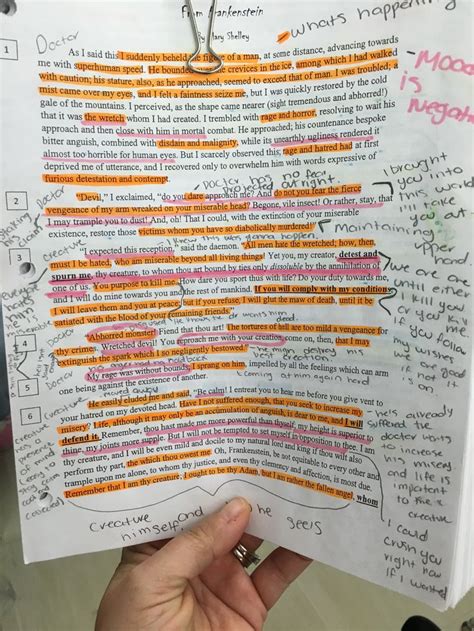 From Frankenstein
By Mary Shelley
whats happening
Doctor
1
As I said this I suddenly beheld the figure of a man, at some distance, advancing towards
me with superhuman speed. He bounded over the crevices in the ice, among which I had walked
with caution; his stature, also, as he approached, seemed to exceed that of man. I was troubled; a
mist came over my eyes, and I felt a faintness seize me, but I was quickly restored by the cold
gale of the mountains. I perceived, as the shape came nearer (sight tremendous and abhorred!)
that it was the wretch whom I had created. I trembled with rage and horror, resolving to wait his
approach and then close with him in mortal combat. He approached; his countenance bespoke
bitter anguish, combined with disdain and malignity, while its unearthly ugliness rendered it
almost too horrible for human eyes. But I scarcely observed this; rage and hatred had at first
deprived me of utterance, and I recovered only to overwhelm him with words expressive of
furious detestation and contempt.
-Mood
is
Negative
Doctor has no fear
projected on him
Doctor
2
"Devil," I exclaimed, "do you dare approach me? And do not you fear the fierce
vengeance of my arm wreaked on your miserable head? Begone, vile insect! Or rather, stay, that
I may trample you to dust! And, oh! That I could, with the extinction of your miserable
existence, restore those victims whom you have so diabolically murdered!"
I brought
you into
this
take
you out
Maintaining
upper
hand
I knew this was gonna happen
3
"I expected this reception," said the daemon. "All men hate the wretched; how, then,
must I be hated, who am miserable beyond all living things! Yet you, my creator, detest and
spurn me, thy creature, to whom thou art bound by ties only dissoluble by the annihilation of
one of us. You purpose to kill me. How dare you sport thus with life? Do your duty towards me,
and I will do mine towards you and the rest of mankind. If you will comply with my conditions
I will leave them and you at peace; but if you refuse, I will glut the maw of death, until it be
satiated with the blood of your remaining friends."
we are
until either
I kill you
or
you follow
my wishes
Doctor
4
"Abhorred monster! Fiend that thou art! The tortures of hell are too mild a vengeance for
thy crimes. Wretched devil! You reproach me with your creation, come on, then, that I may
extinguish the spark which I so negligently bestowed."
Doctor
5
My rage was without bounds; I sprang on him, impelled by all the feelings which can arm
one being against the existence of another.
coming at him again hard
moved away
creature
6
He easily eluded me and said, "Be calm! I entreat you to hear me before you give vent to
your hatred on my devoted head. Have I not suffered enough, that you seek to increase my
misery? Life, although it may only be an accumulation of anguish, is dear to me, and I will
defend it. Remember, thou hast made me more powerful than thyself; my height is superior to
thine, my joints more supple. But I will not be tempted to set myself in opposition to thee. I am
thy creature, and I will be even mild and docile to my natural lord and king if thou wilt also
perform thy part, the which thou owest me. Oh, Frankenstein, be not equitable to every other and
trample upon me alone, to whom thy justice, and even thy clemency and affection, is most due.
Remember that I am thy creature; I ought to be thy Adam, but I am rather the fallen angel, whom
he's already
suffered the
doctor wants
to increase
his misery
and life is
important
to the
creature
I could
crush you
right now
if I wanted
creature and he sees
himself